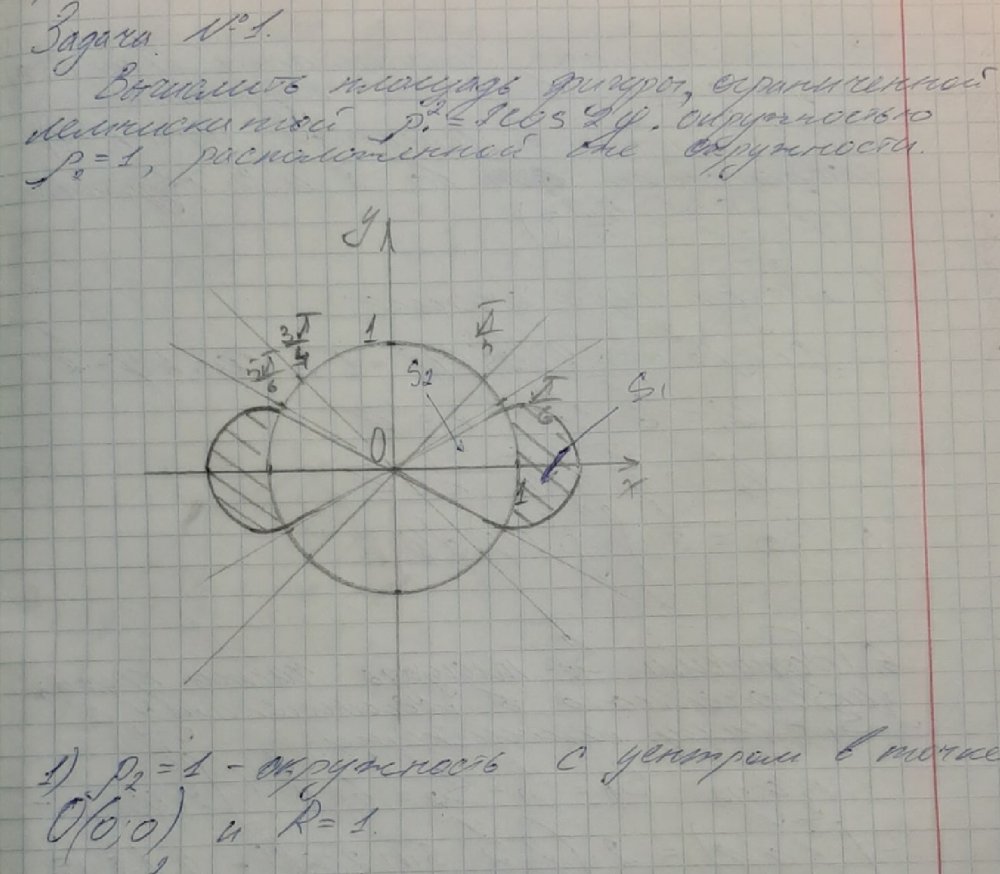 Задача №1.
Вычислить площадь фигуры, ограниченной
лемнискатой ρ₁² = 2cos2φ. окружностью
ρ₂ = 1, расположенной вне окружности.
y
3π/4
1
5π/6
S₂
π/6
S₁
O
1
x
1) ρ₂ = 1 - окружность с центром в точке
O(0;0) и R = 1.